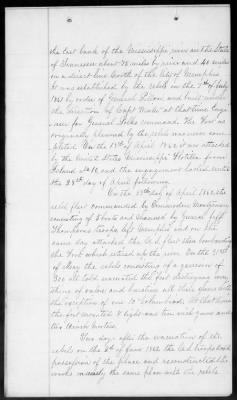 the east bank of the Mississippi river in the State
of Tennessee about 78 miles by river and 40 miles
on a direct line North of the City of Memphis
It was established by the rebels on the of July
1861 by order of General Pillow and built under
the direction of Capt at that time Engi-
neer for General Polks command. The Fort as
originally planned by the rebels was never com-
pleted. On the of April 1862 it was attacked
by the United States Mississippi Flotilla from
Island No 10, and the engagement lasted until
the 28th day of April following.
On the day of April 1862, the
rebel fleet commanded by Commodore Montgomery
consisting of 8 boats and manned by General Jeff
Thompsons troops left Memphis and on the
same day attacked the U.S. fleet then bombarding
the Fort which retired up the river. On the
of May the rebels consisting of a garrison of
300 all told evacuated the fort destroying every
thing of value and bursting all their guns with
the exception of one 10 in Columbiad. At that time
the fort mounted 8 eight and ten inch guns and
two Mortars.
Two days after the evacuation of the
rebels on the of June 1862 the Federal troops took
possession of the place and reconstructed the
works the same plan with the rebels